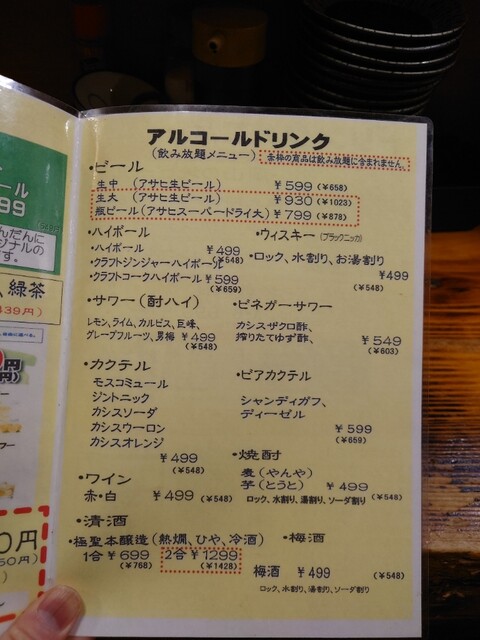 アルコールドリンク
(飲み放題メニュー) 赤枠の商品は飲み放題に含まれません。
・ビール
生中 (アサヒ生ビール) ¥599(¥658)
生大 (アサヒ生ビール) ¥930(¥1023)
瓶ビール(アサヒスーパードライ大) ¥799(¥878)
・ハイボール
・ハイボール ¥499
(¥548)
・クラフトジンジャーハイボール
・クラフトコークハイボール ¥599
(¥659)
・ウィスキー (ブラックニッカ)
・ロック、水割り、お湯割り
¥499
(¥548)
・サワー(酎ハイ)
レモン、ライム、カルピス、巨峰、
グレープフルーツ、男梅 ¥499
(¥548)
・ビネガーサワー
カシスザクロ酢、
搾りたてゆず酢、 ¥549
(¥603)
・カクテル
モスコミュール
ジントニック
カシスソーダ
カシスウーロン
カシスオレンジ
¥499
(¥548)
・ビアカクテル
シャンディガフ、
ディーゼル
¥599
(¥659)
・ワイン
赤・白 ¥499 (¥548)
・焼酎
麦(やんや)
芋(とうと) ¥499 (¥548)
ロック、水割り、湯割り、ソーダ割り
・清酒
・極聖本醸造(熱燗、ひや、冷酒)
1合¥699 2合¥1299
(¥768) (¥1428)
・梅酒
梅酒 ¥499 (¥548)
ロック、水割り、湯割り、ソーダ割り
ール
99
んだんに
ジナルの
す。
、緑茶
439円)
0円
50円)